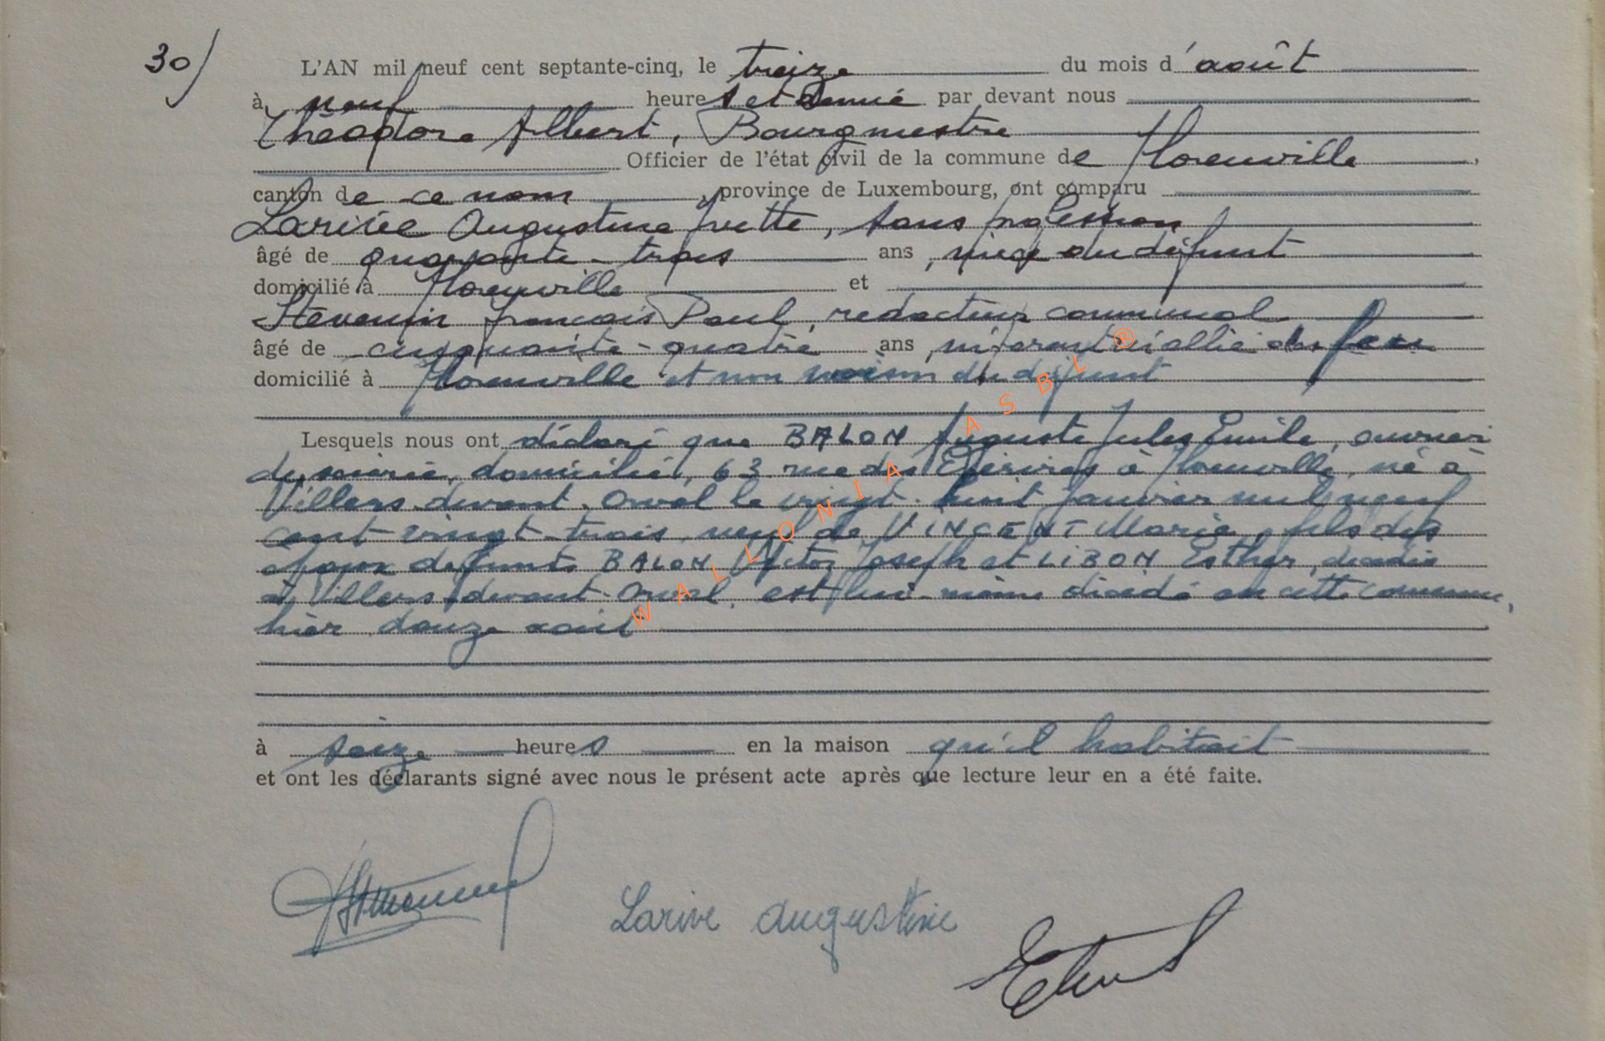 30/
L'AN mil neuf cent septante-cinq, le treize du mois d'août
à neuf heures et demie par devant nous
Théodore Albert, Bourgmestre
Officier de l'état civil de la commune de Florenville,
canton de ce nom, province de Luxembourg, ont comparu
Augustine Yvette, sans profession
âgé de quarante-trois ans, nièce du défunt
domicilié à Florenville et
Stevenin François Paul, rédacteur communal
âgé de cinquante-quatre ans, ni parent ni allié du
domicilié à Florenville et non voisin du défunt
Lesquels nous ont déclaré que BALON Auguste Jules Emile, ouvrier
de scierie, domicilié, 63 rue des Epérires à Florenville, né à
Villers-devant-Orval le vingt-huit janvier mil neuf
cent vingt-trois, veuf de VINCENT Marie, fils des
époux défunts BALON Victor Joseph et LIBON Esther, décédés
à Villers-devant-Orval, est lui-même décédé en cette commune,
hier douze août
à seize heures en la maison qu'il habitait
et ont les déclarants signé avec nous le présent acte après que lecture leur en a été faite.
Larive Augustine
WALLONIA ASBL ®